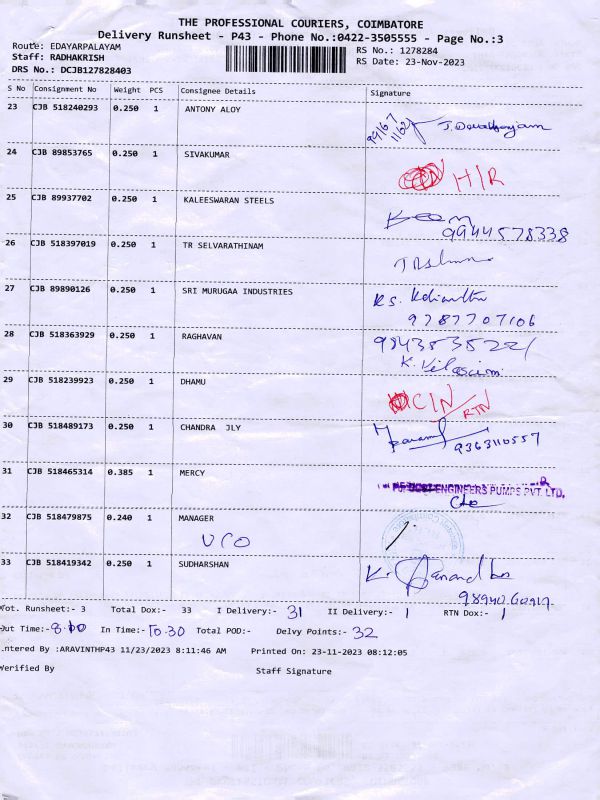 THE PROFESSIONAL COURIERS, COIMBATORE
Delivery Runsheet - P43 - Phone No.:0422-3505555 - Page No.:3
Route: EDAYARPALAYAM
RS No.: 1278284
Staff: RADHAKRISH
RS Date: 23-Nov-2023
DRS No.: DCJB127828403
S No Consignment No Weight PCS Consignee Details Signature
23 CJB 518240293 0.250 1 ANTONY ALOY
24 CJB 89853765 0.250 1 SIVAKUMAR H/R
25 CJB 89937702 0.250 1 KALEESWARAN STEELS
9944578338
26 CJB 518397019 0.250 1 TR SELVARATHINAM
27 CJB 89890126 0.250 1 SRI MURUGAA INDUSTRIES
9787707106
28 CJB 518363929 0.250 1 RAGHAVAN
29 CJB 518239923 0.250 1 DHAMU C/N/RTN
30 CJB 518489173 0.250 1 CHANDRA JLY
9363110557
31 CJB 518465314 0.385 1 MERCY
ENGINEERS PUMPS PVT. LTD.
32 CJB 518479875 0.240 1 MANAGER
UCO
33 CJB 518419342 0.250 1 SUDHARSHAN
Tot. Runsheet:- 3 Total Dox:- 33 I Delivery:- 31 II Delivery:- 1 RTN Dox:- 1
Out Time:- In Time:- 10.30 Total POD:- Delvy Points:- 32
Entered By :ARAVINTHP43 11/23/2023 8:11:46 AM Printed On: 23-11-2023 08:12:05
Verified By Staff Signature